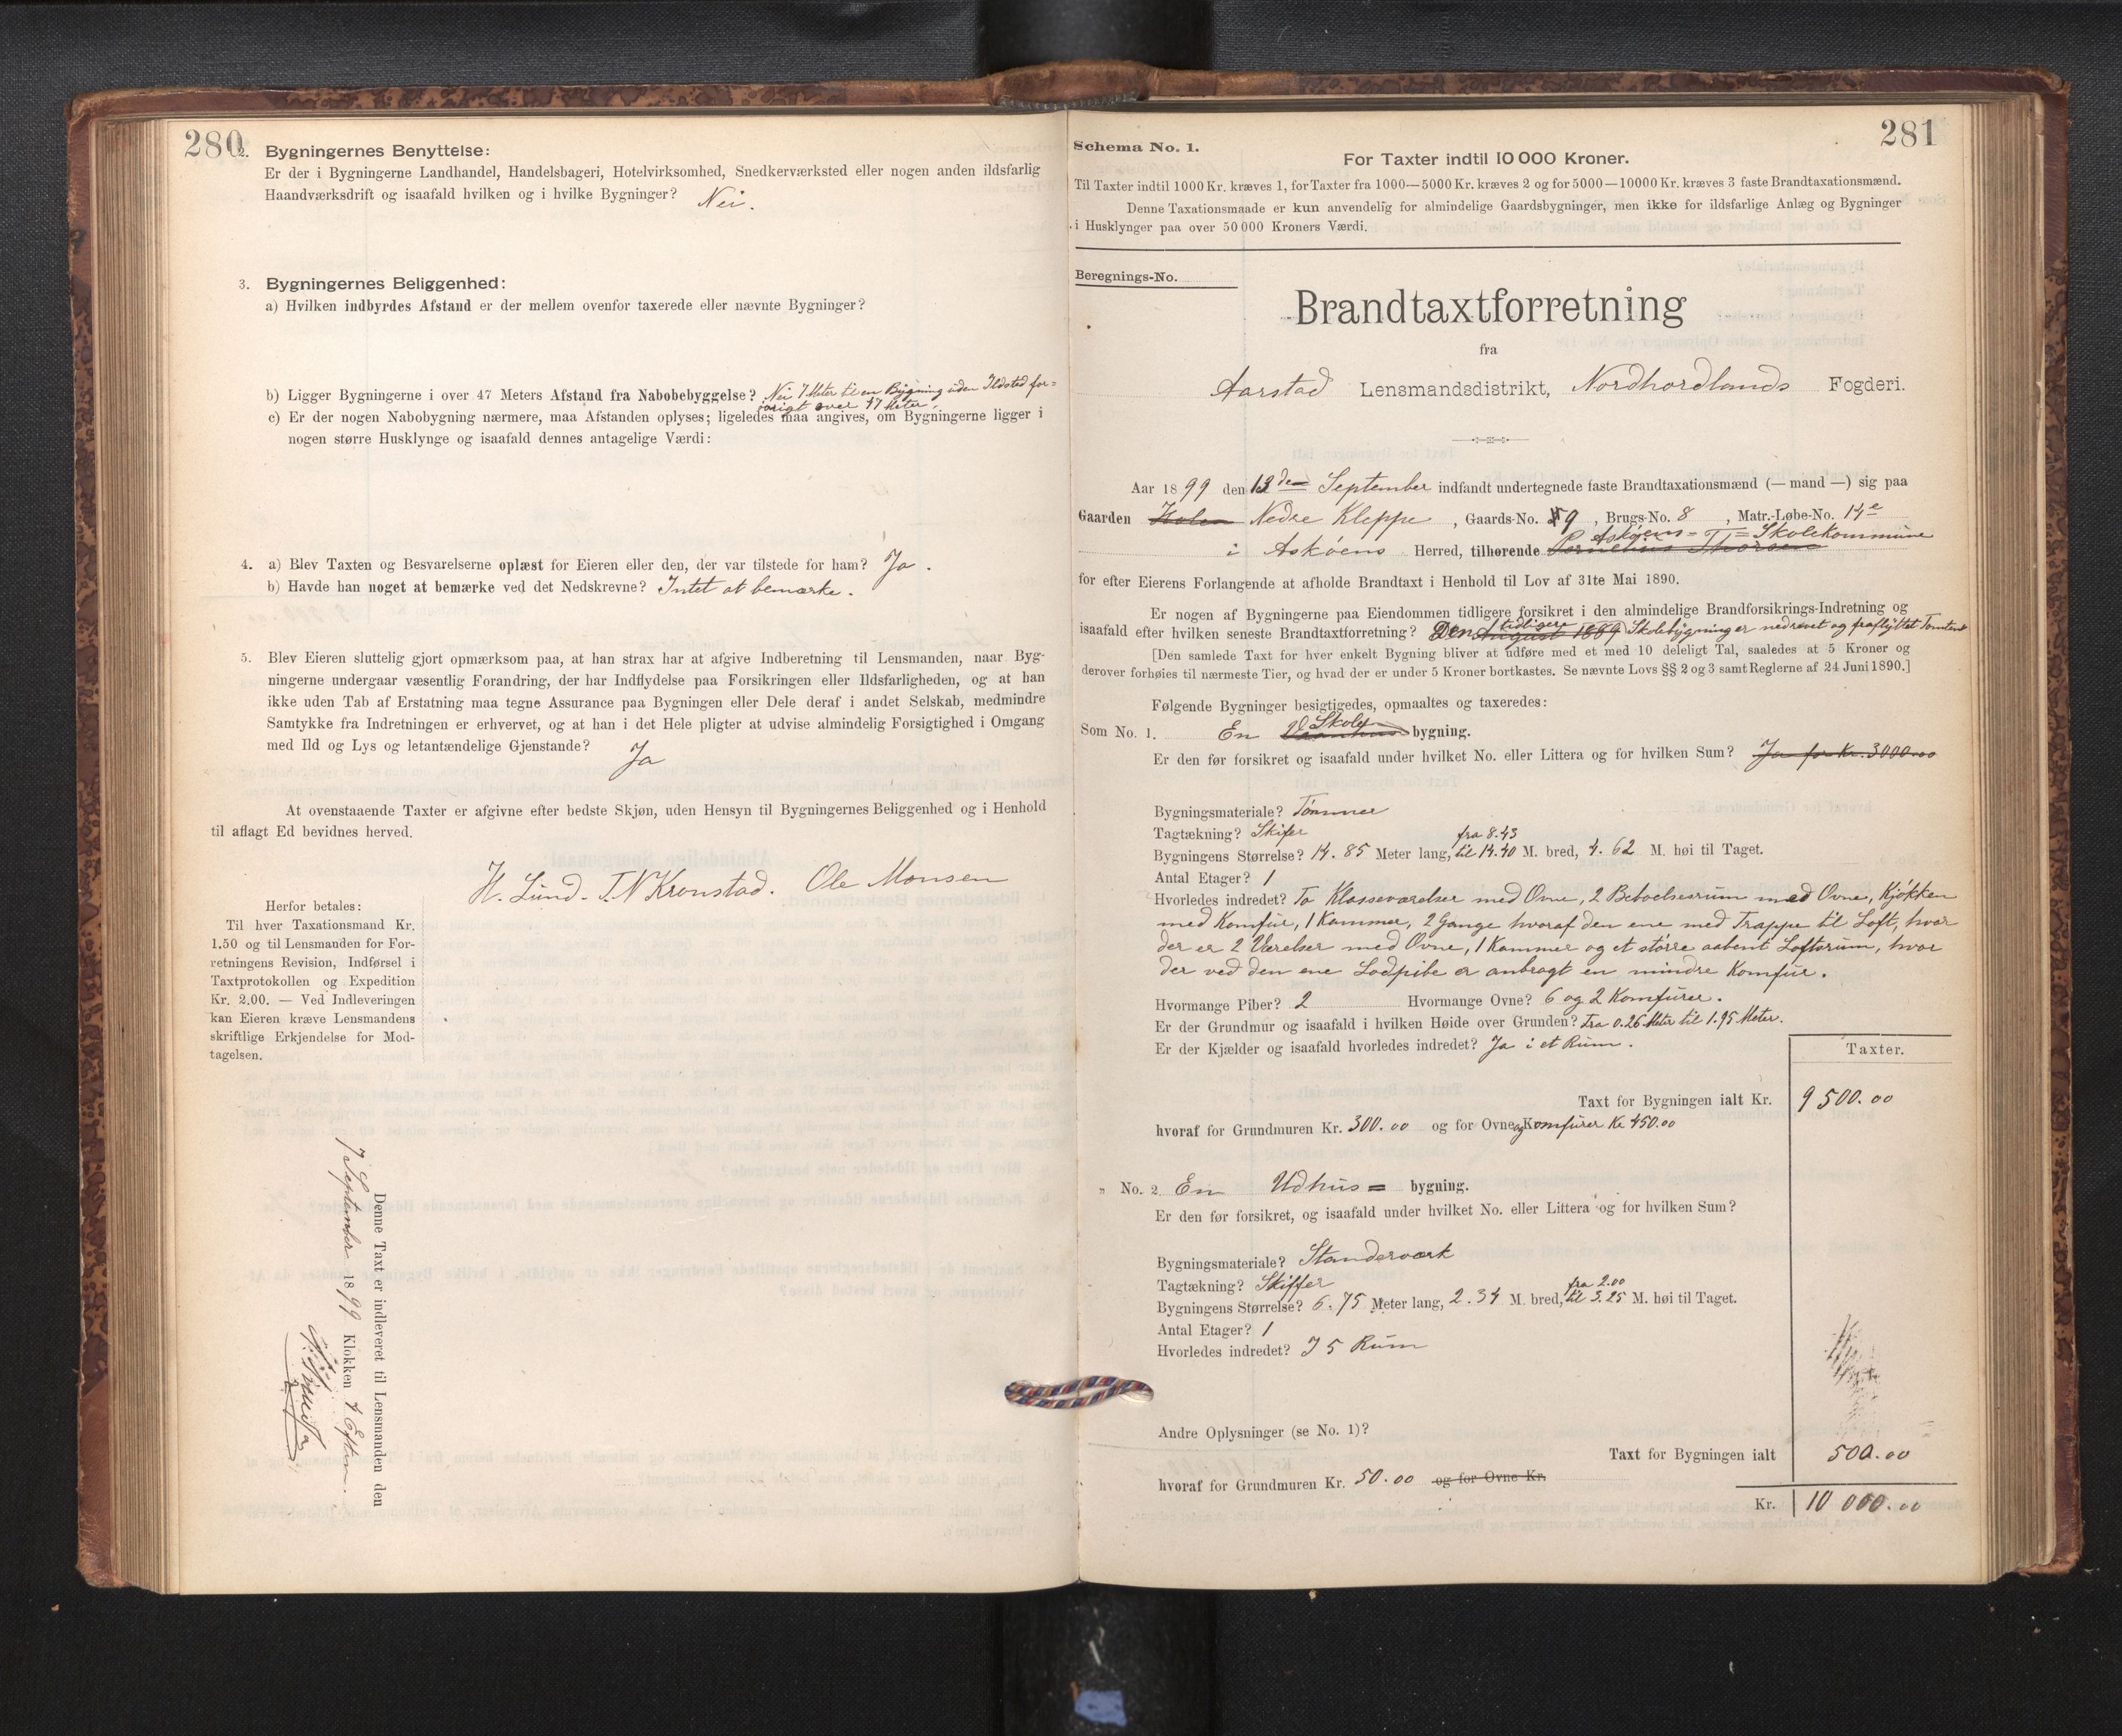 280
2. Bygningernes Benyttelse:
Er der i Bygningerne Landhandel, Handelsbageri, Hotelvirksomhed, Snedkerværksted eller nogen anden ildsfarlig
Haandværksdrift og isaafald hvilken og i hvilke Bygninger? Nei.
3. Bygningernes Beliggenhed:
a) Hvilken indbyrdes Afstand er der mellem ovenfor taxerede eller nævnte Bygninger?
b) Ligger Bygningerne i over 47 Meters Afstand fra Nabobebyggelse? Nei 7 Meter til en Bygning uden Ildsted for=
øvrigt over 47 Meter.
c) Er der nogen Nabobygning nærmere, maa Afstanden oplyses; ligeledes maa angives, om Bygningerne ligger i
nogen større Husklynge og isaafald dennes antagelige Værdi:
4. a) Blev Taxten og Besvarelserne oplæst for Eieren eller den, der var tilstede for ham? Ja.
b) Havde han noget at bemærke ved det Nedskrevne? Intet at bemærke.
5. Blev Eieren sluttelig gjort opmærksom paa, at han strax har at afgive Indberetning til Lensmanden, naar Byg-
ningerne undergaar væsentlig Forandring, der har Indflydelse paa Forsikringen eller Ildsfarligheden, og at han
ikke uden Tab af Erstatning maa tegne Assurance paa Bygningen eller Dele deraf i andet Selskab, medmindre
Samtykke fra Indretningen er erhvervet, og at han i det Hele pligter at udvise almindelig Forsigtighed i Omgang
med Ild og Lys og letantændelige Gjenstande? Ja
At ovenstaaende Taxter er afgivne efter bedste Skjøn, uden Hensyn til Bygningernes Beliggenhed og i Henhold
til aflagt Ed bevidnes herved.
H. Lund. T. N Kronstad. Ole Monsen
Herfor betales:
Til hver Taxationsmand Kr.
1.50 og til Lensmanden for For-
retningens Revision, Indførsel i
Taxtprotokollen og Expedition
Kr. 2.00. — Ved Indleveringen
kan Eieren kræve Lensmandens
skriftlige Erkjendelse for Mod-
tagelsen.
Denne Taxt er indleveret til Lensmanden den
7 September 1899 Klokken 4 Efterm.
281
Schema No. 1.
For Taxter indtil 10 000 Kroner.
Til Taxter indtil 1000 Kr. kræves 1, for Taxter fra 1000—5000 Kr. kræves 2 og for 5000—10000 Kr. kræves 3 faste Brandtaxationsmænd.
Denne Taxationsmaade er kun anvendelig for almindelige Gaardsbygninger, men ikke for ildsfarlige Anlæg og Bygninger
i Husklynger paa over 50 000 Kroners Værdi.
Beregnings-No.
Brandtaxtforretning
fra
Aarstad Lensmandsdistrikt, Nordhordlands Fogderi.
Aar 1899 den 13den September indfandt undertegnede faste Brandtaxationsmænd (— mand —) sig paa
Gaarden Holen Nedre Kleppe, Gaards-No. 9, Brugs-No. 8, Matr.-Løbe-No. 14e
Askøens Skolekommune
i Askøens Herred, tilhørende Thorsen
for efter Eierens Forlangende at afholde Brandtaxt i Henhold til Lov af 31te Mai 1890.
Er nogen af Bygningerne paa Eiendommen tidligere forsikret i den almindelige Brandforsikrings-Indretning og
isaafald efter hvilken seneste Brandtaxtforretning? Den tidligere August 1889 Skolebygning er nedrevet og fraflyttet Tomten
[Den samlede Taxt for hver enkelt Bygning bliver at udføre med et med 10 deleligt Tal, saaledes at 5 Kroner og
derover forhøies til nærmeste Tier, og hvad der er under 5 Kroner bortkastes. Se nævnte Lovs §§ 2 og 3 samt Reglerne af 24 Juni 1890.]
Følgende Bygninger besigtigedes, opmaaltes og taxeredes:
Som No. 1. En Vaanhus Skole bygning.
Er den før forsikret og isaafald under hvilket No. eller Littera og for hvilken Sum? Ja for Kr. 3000.00
Bygningsmateriale? Tømmer
Tagtækning? Skifer
Bygningens Størrelse? 14.85 Meter lang, fra 8.43 til 14.40 M. bred, 4.62 M. høi til Taget.
Antal Etager? 1
Hvorledes indredet? To Klasseværelser med Ovne, 2 Beboelsesrum med Ovne, Kjøkken
med Komfur, 1 Kammer, 2 Gange hvoraf den ene med Trappe til Loft, hvor
der er 2 Værelser med Ovne, 1 Kammer og et større aabent Loftsrum, hvor
der ved den ene Lodpibe er anbragt en mindre Komfur.
Hvormange Piber? 2 Hvormange Ovne? 6 og 2 Komfurer.
Er der Grundmur og isaafald i hvilken Høide over Grunden? Fra 0.26 Meter til 1.95 Meter.
Er der Kjælder og isaafald hvorledes indredet? Ja i et Rum.
Taxter.
Taxt for Bygningen ialt Kr. 9500.00
hvoraf for Grundmuren Kr. 300.00 og for Ovne og Komfurer Kr 450.00
" No. 2 En Udhus= bygning.
Er den før forsikret, og isaafald under hvilket No. eller Littera og for hvilken Sum?
Bygningsmateriale? Standerværk
Tagtækning? Skiffer
Bygningens Størrelse? 6.75 Meter lang, 2.34 M. bred, fra 2.00 til 3.25 M. høi til Taget.
Antal Etager? 1
Hvorledes indredet? I 5 Rum
Andre Oplysninger (se No. 1)?
Taxt for Bygningen ialt 500.00
hvoraf for Grundmuren Kr. 50.00 og for Ovne Kr.
Kr. 10 000.00